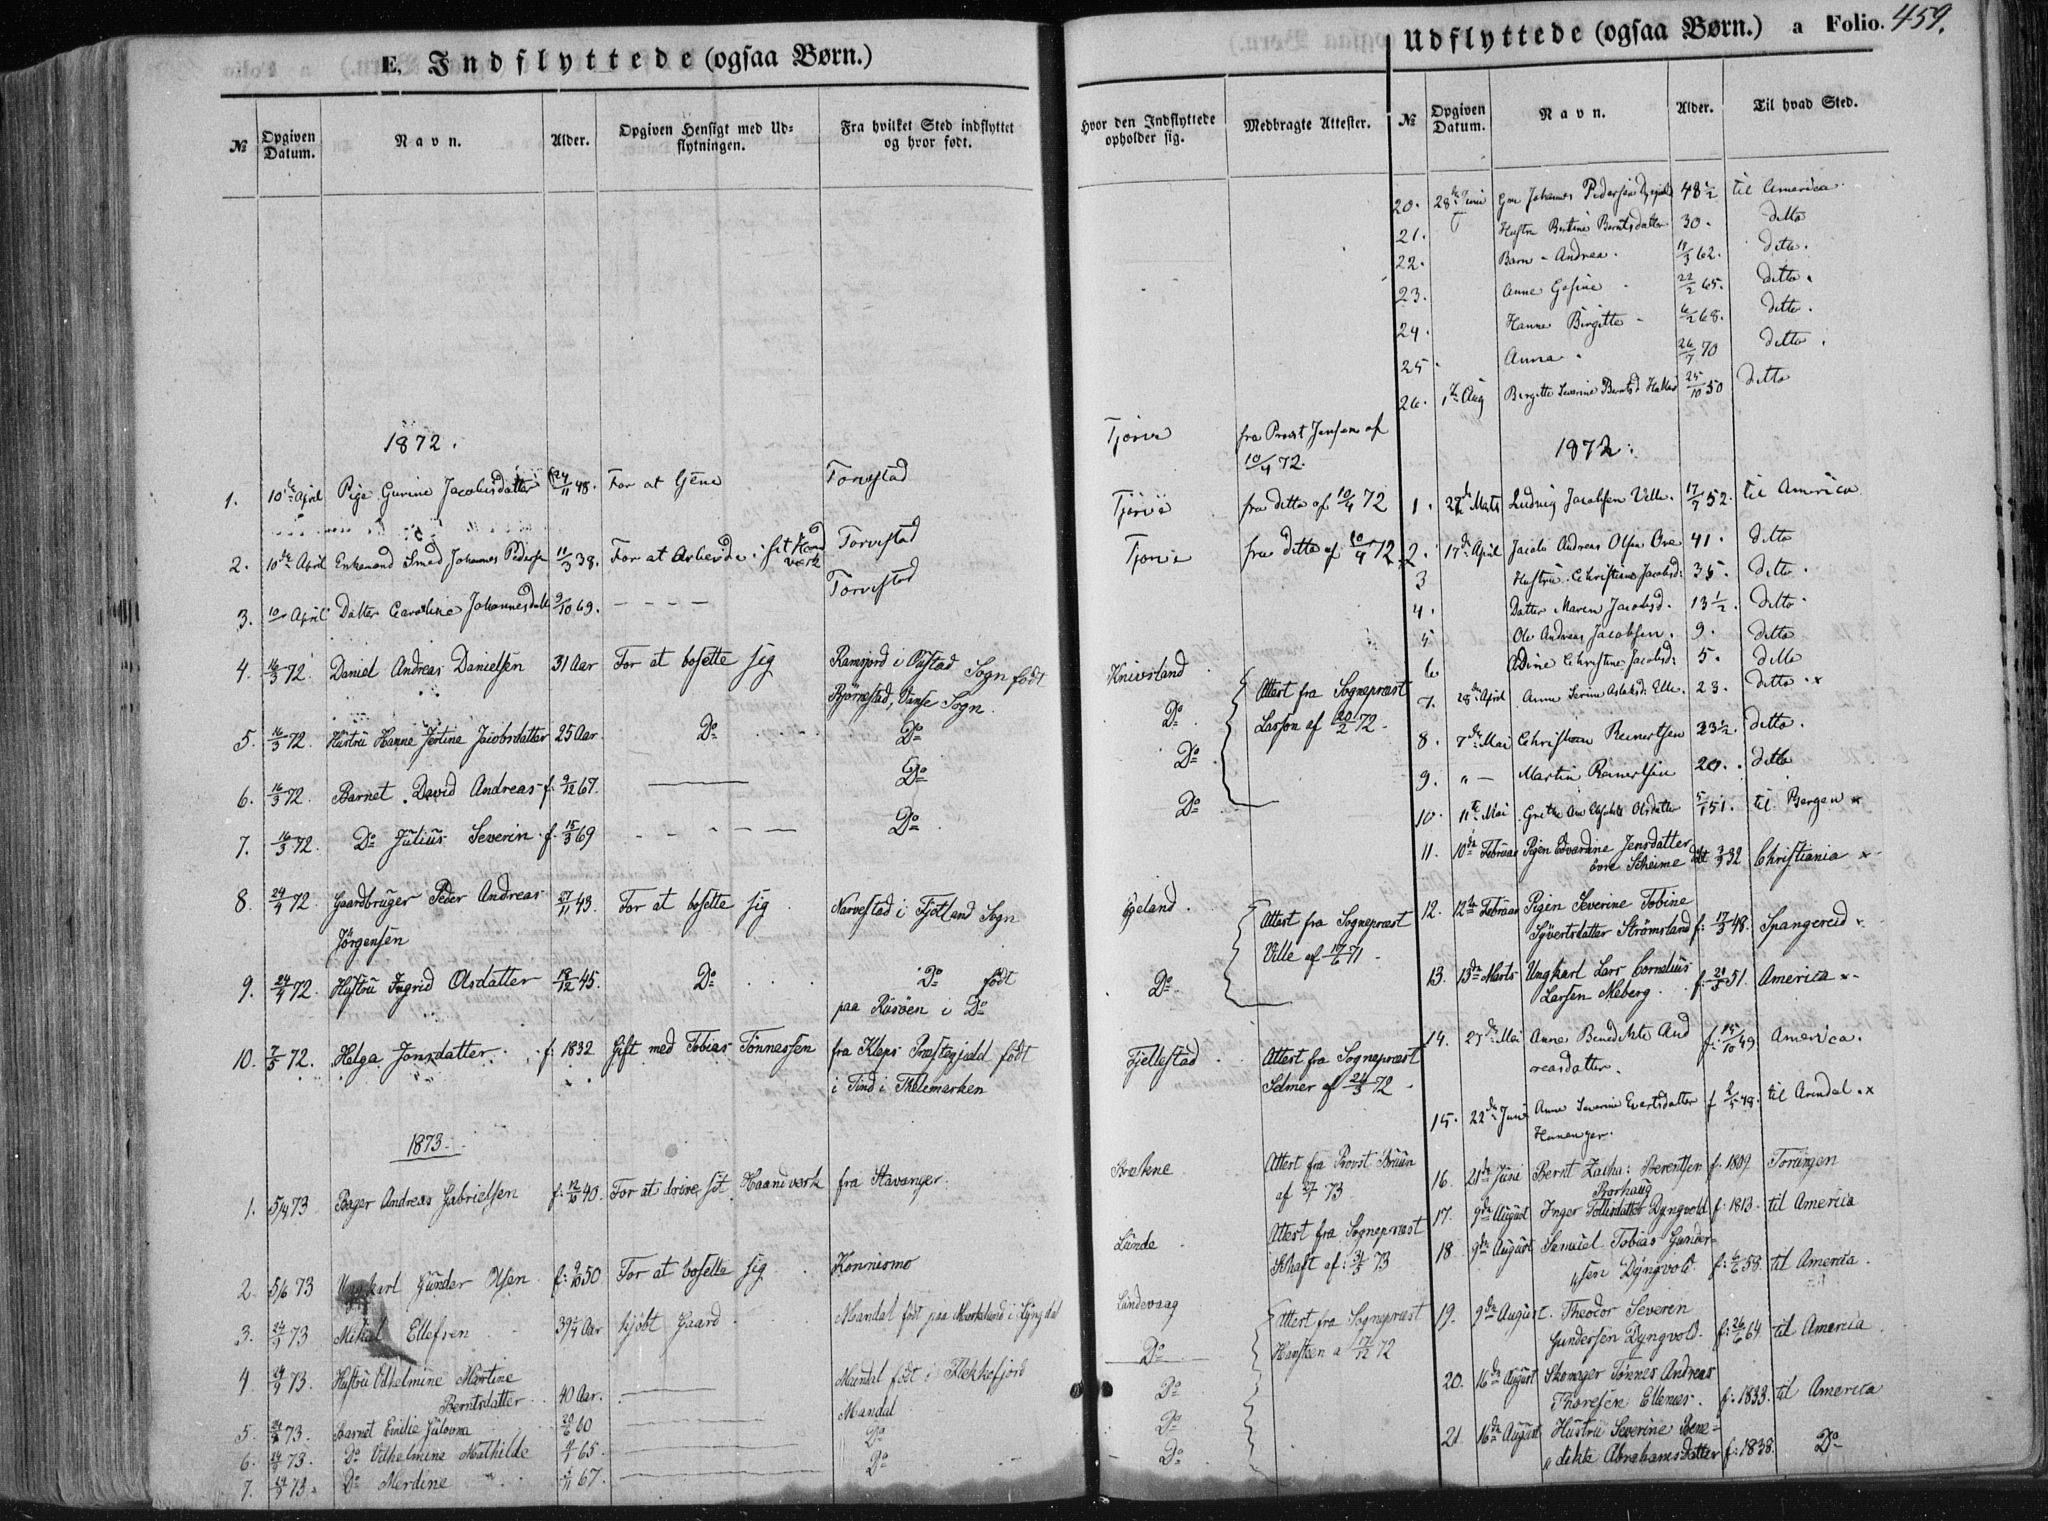 E. Indflyttede (ogsaa Børn.)
№
Opgiven Datum.
Navn.
Alder.
Opgiven Hensigt med Udflytningen.
Fra hvilket Sted indflyttet og hvor født.
1872.
1. 10de April Pige Gurine Jacobsdatter 24/11 48. For at tjene Torvestad
2. 10de April Enkemand Smed Johannes Pederse 11/3 38. For at Arbeide i sit Haandværk Torvestad
3. 10 April Datter Caroline Johannesdatt 9/10 69. — — — — Torvestad
4. 16/3 72. Daniel Andreas Danielsen 31 Aar For at bosette sig Sogn født
Bjørnestad, Vanse Sogn.
5. 16/3 72. Hustru Hanne Jertina Jacobsdatter 25 Aar. Do Do
6. 16/3 72. Barnet David Andreas f. 9/12 67. — Do
7. 16/3 72. Do Julius Severin f. 15/3 69 — — — — — Do
8. 24/4 72. Gaardbruger Peder Andreas 27/11 43. For at bosette sig Narvestad i Fjotland Sogn
Jörgensen
9. 24/4 72. Hustru Ingrid Olsdatter 18/12 45. Do Do født
paa Rösöen i Do
10. 7/5 72. Helga Jonsdatter f. 1832 Gift med Tobias Tönnessen fra Kleps Præstegjæld født
i Tind i Thelemarken
1873.
1. 5/4 73 Bager Andreas Gabrielsen f: 12/10 40. For at drive sit Haandverk fra Stavanger.
2. 5/6 73 Ungkarl Gunder Olsen f: 9/10 50 For at bosette sig Konnismo
3. 24/9 73 Mikal Ellefsen 39 1/4 Aar kjöbt Gaard Mandal født paa i Lyngdal
4. 24/9 73. Hustru Vilhelmine Martine Mandal født i Flekkefjord
Berntsdatter 40 Aar. —
5. 24/9 73. Barnet Emilie Julovna 20/6 60 — Mandal
6. 24/9 73. Do Vilhelmine Mathilde 65. — Do
7. 24/9 73. Do Merdine 4/11 67. — Do
Hvor den Indflyttede opholder sig.
Medbragte Attester.
Tjørve fra Provst Jensen af
10/4 72.
Tjørve fra ditto af 10/4 72
Tjørve fra ditto af 10/4 72
Knivsland
Attest fra Sogneprest
Do Lassen af 20/2 72.
Do
Do
Egeland
Attest fra Sogneprest
Ville af 17/6 71
Do
Fjellestad Attest fra Sogneprest
Selmer af 21/3 72
Brekne Attest fra Provst Bruun
af 73
Lunde Attest fra Sogneprest
Schaft af: 31/3 73
Lundevaag Attest fra Sogneprest
Do Hansteen a 17/12 72
Do
Do
Do
Udflyttede (ogsaa Børn.) a Folio. 459.
№
Opgiven Datum.
Navn.
Alder.
Til hvad Sted.
20. 28de Juni Gm Johannes Pedersen 48 1/2 til America.
21. Hustru Bertine Berntsdatter 30. ditto
22. Barn - Andrea. 11/3 62. ditto.
23. Anne Gesine 22/2 65. ditto.
24. Hanne Birgitte 6/2 68. ditto.
25. Anna 26/7 70 ditto.
26. 1te Aug Birgitte Severine Berntsd 25/10 50 ditto
1872.
1. 27de Marts Ludvig Jacobsen Velle. 17/7 52. til America
2. 17de April Jacob Andreas Olsen Øre 41. ditto
3 Hustru Christiane Jacobsd: 35. ditto.
4. Datter Maren Jacobsd. 13 1/2. ditto.
5 Ole Andreas Jacobsen. 9. ditto
6. Adine Christine Jacobsd: 5. ditto
7. 28de April Anne Serine Aslaksd: Elle. 23. ditto. x
8. 7de Mai Christian Reinertsen 23 1/2. ditto.
9. " — Martin Reinertsen 20. ditto
10. 11te Mai Grethe Olsdatter 5/1 51. til Bergen x
11. 10de Februar Pigen Edvardine Jensdatter
övre Scheime 3/9 32 Christiania x
12. 12te Februar Pigen Severine Tobine
Syvertsdatter Strömsland f: 17/3 48. Spangereid x
13. 13de Marts Ungkarl Lars Cornelius
Larsen Meberg f: 21/3 51. America x
14. 27de Mai Anne Benedikte And
reasdatter. f: 15/10 49 America.
15. 22de Juni Anne Severine Evertsdatter f 2/5 48. til Arendal. x
16. 21de Juni Bernt Zacha: Berentsen f: 1809 Torüngen
Rorhaug
17. 9de August Inger Tollisdatter Dyngvold f: 1813. til America
18. 9de August Samuel Tobias Gunder-
„sen Dyngvold f: 6/6 58. til America.
19. 9de August. Theodor Severin
Gundersen Dyngvold. f: 26/6 64. til America.
20. 16de August Skomager Tønnes Andreas
Thoresen Ellenes. f: 1833. til America
21 16de August Hustru Severine Bene-
„dikte Abrahamsdatter f: 1838. Do